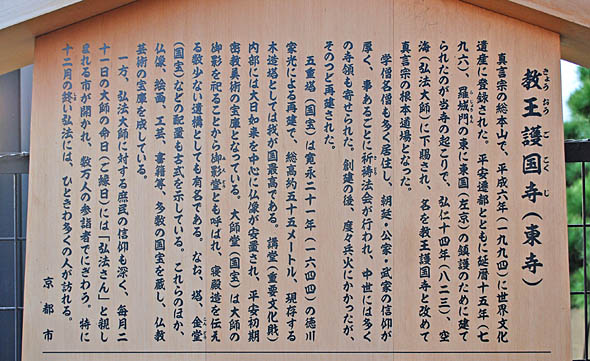 きょうおうごこくじ
教王護国寺（東寺）
真言宗の総本山で、平成六年（一九九四）に世界文化
遺産に登録された。平安遷都とともに延暦十五年（七
九六）、羅城門の東に東国（左京）の鎮護のために建て
られたのが当寺の起こりで、弘仁十四年（八二三）、空
海（弘法大師）に下賜され、名を教王護国寺と改めて
真言宗の根本道場となった。
学僧名僧も多く居住し、朝廷・公家・武家の信仰が
厚く、事あるごとに祈祷法会が行われ、中世には多く
の寺領も寄せられた。創建の後、度々兵火にかかったが、
そのつど再建された。
五重塔（国宝）は寛永二十一年（一六四四）の徳川
家光による再建で、総高約五十五メートル、現存する
木造塔としては我が国最高である。講堂（重要文化財）
内部には大日如来を中心に仏像が安置され、平安初期
密教美術の宝庫となっている。大師堂（国宝）は大師の
御影を祀ることから御影堂とも呼ばれ、寝殿造を伝え
る数少ない遺構としても有名である。なお、塔、金堂
（国宝）などの配置も古式を示している。これらのほか、
仏像、絵画、工芸、書籍等、多数の国宝を蔵し、仏教
芸術の宝庫を成している。
一方、弘法大師に対する庶民の信仰も深く、毎月二
十一日の大師の命日（ご縁日）には「弘法さん」と親し
まれる市が開かれ、数万人の参詣者でにぎわう。特に
十二月の終い弘法には、ひときわ多くの人が訪れる。
京都市